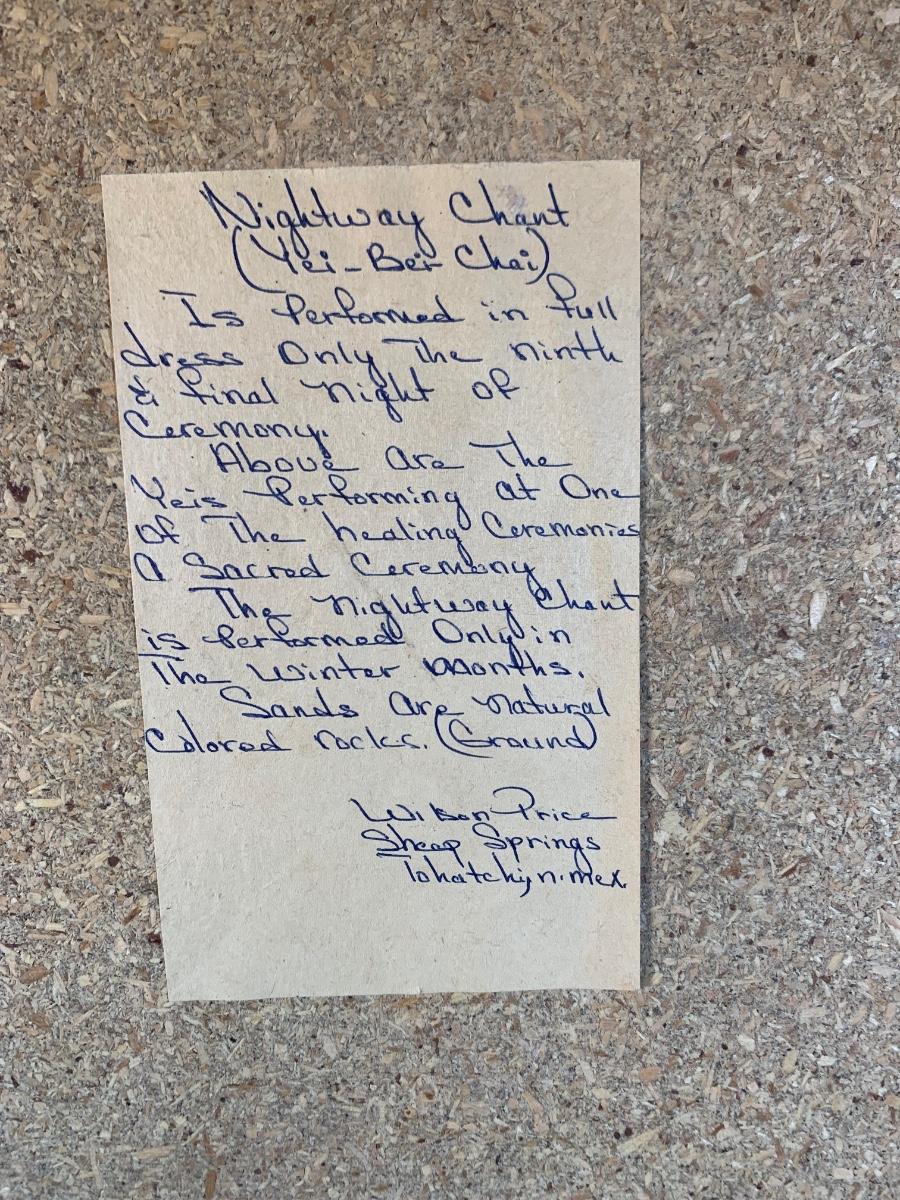 Nightway Chant
(Yei-Bei-Chai)
Is Performed in full
dress Only The ninth
& final night of
Ceremony.
Above are The
Yeis Performing at One
of The healing Ceremonies
A Sacred Ceremony
The Nightway Chant
is Performed Only in
The Winter Months.
Sands are natural
Colored rocks. (Ground)
Wilson Price
Sheep Springs
Tohatchi, n. mex.